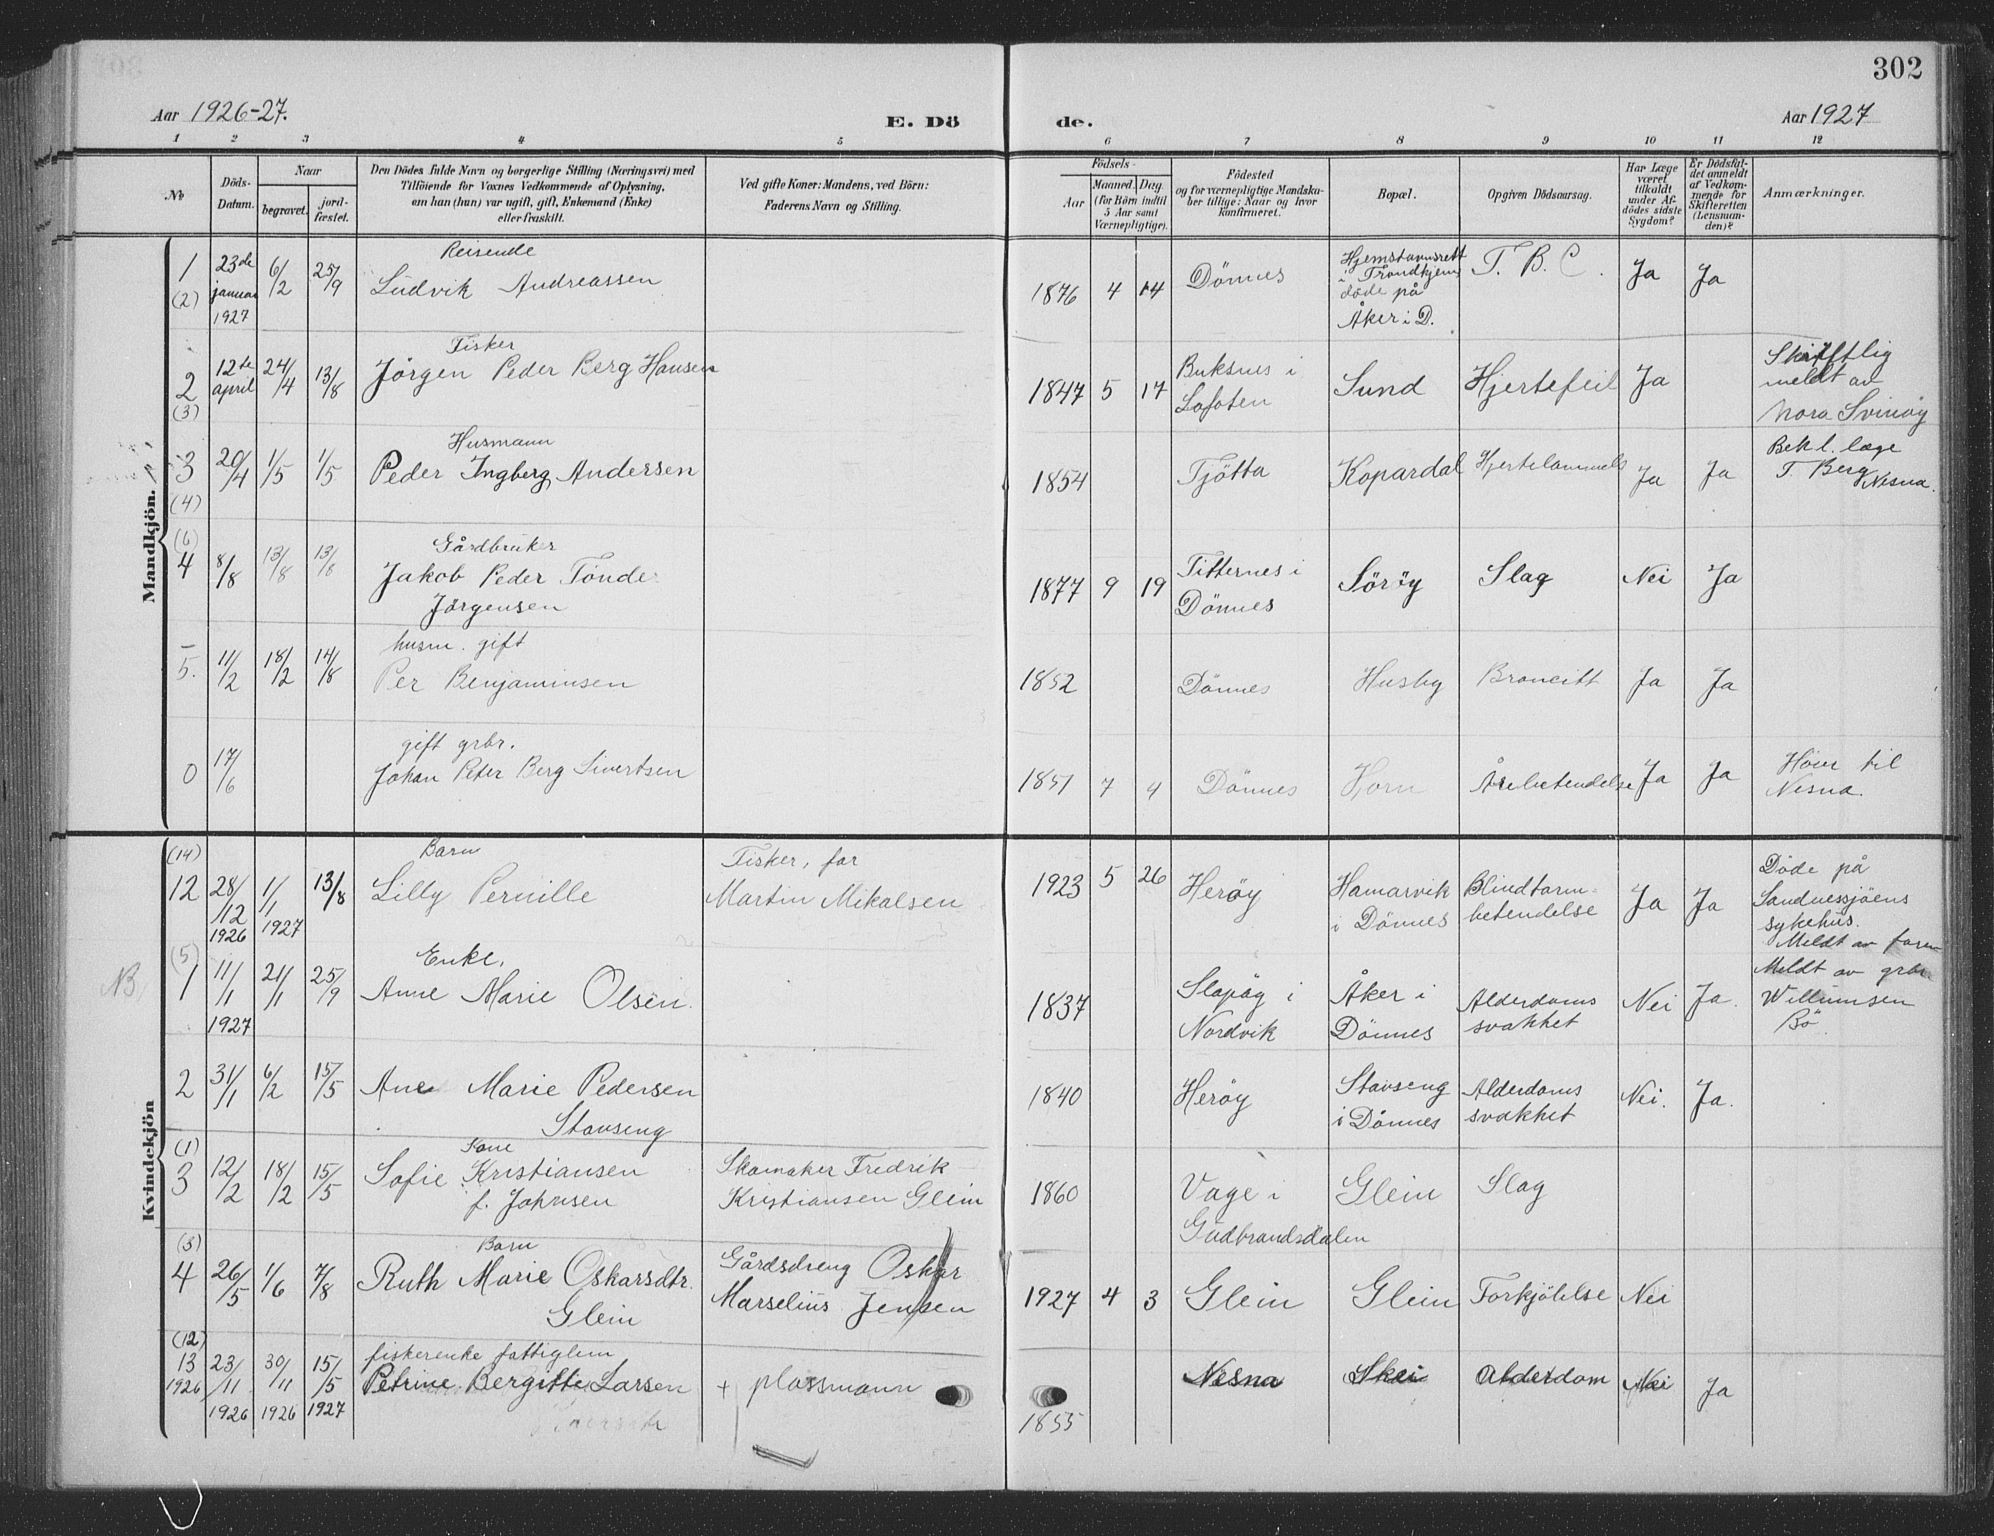 302
Aar 1926-27. E. Dö de. Aar 1927
1 2 3 4 5 6 7 8 9 10 11 12
No
Döds-Datum.
Naar
begravet.
jord-fæstet.
Den Dödes fulde Navn og borgerlige Stilling (Næringsvei) med
Tilföiende for Voxnes Vedkommende af Oplysning,
om han (hun) var ugift, gift, Enkemand (Enke)
eller fraskilt.
Ved gifte Koner: Mandens, ved Börn:
Faderens Navn og Stilling.
Födsels-
Aar
Maaned. Dag.
(for Börn indtil
5 Aar samt
Værnepligtige).
Födested
og for værnepligtige Mandska-
ber tillige: Naar og hvor
konfirmeret.
Bopæl.
Opgiven Dödsaarsag.
Har Læge
været
tilkaldt
under Af-
dödes sidste
Sygdom?
Er Dödsfal-
det anmeldt
af Vedkom-
mende for
Skifteretten
(Lensman-
den)?
Anmærkninger.
Mandkjön.
1 (2) 23de januar 1927 6/2 25/9 Reisende
Ludvik Andreassen 1876 4 14 Dönnes Hjemstavnsrett
i Trondkjem
döde på
Åker i D. T. B. C. Ja Ja
2 (3) 12te april 24/4 13/8 Fisker
Jörgen Peder Berg Hansen 1847 5 17 Buksnes i
Lofoten Sund Hjertefeil Ja Skriftlig
meldt av
Nora Svinöy
3 (4) 20/4 1/5 1/5 Husmann
Peder Ingberg Andersen 1854 Tjötta Kopardal Hjertelammels Ja Ja Bek l. læge
T. Berg
Nesna.
(6) 4 8/8 13/8 13/8 Gårdbruker
Jakob Peder Tönde
Jörgensen 1877 9 19 Titternes i
Dönnes Söröy Slag Nei Ja
5. 11/2 18/2 14/8 husm. gift
Per Benjaminsen 1852 Dönnes Husby Broncitt Ja Ja
0 17/6 gift grbr.
Johan Peter Berg Sivertsen 1851 7 4 Dönnes Hjorn Årebetendelse Ja Ja Hörer til
Nesna.
Kvindekjön
(14) 12 28/12 1926 1/1 1927 13/8 Barn
Lilly Pernille Fisker, far
Martin Mikalsen 1923 5 26 Heröy Hamarvik
i Dönnes Blindtarm-
betendelse Ja Ja Döde på
Sandnessjöens
sykehus.
Meldt av faren
NB (5) 1 11/1 1927 21/1 25/9 Enke,
Anne Marie Olsen. 1837 Slapöy i
Nordvik Åker i
Dönnes Alderdoms
svakhet Nei Ja. Meldt av grbr.
Willumsen
Bö.
2 31/1 6/2 15/5 Ane Marie Pedersen
Stavseng 1840 Heröy Stavseng
i Dönnes Alderdoms
svakhet Nei. Ja.
(1) 3 12/2 18/2 15/5 Kone
Sofie Kristiansen
f. Johnsen Skomaker Fredrik
Kristiansen Glein 1860 Vage i
Gudbrandsdalen Glein Slag
(3) 4 26/5 1/6 7/8 Barn
Ruth Marie Oskarsdtr.
Glein Gårdsdreng Oskar
Marselius Jensen 1927 4 3 Glein Glein Forkjölelse Nei
(12) 13 1926 23/11 1926 30/11 1926 15/5 1927 fiskerenke fattiglem
Petrine Bergitte Larsen + plassmann 1855 Nesna Skei Alderdom Nei Ja